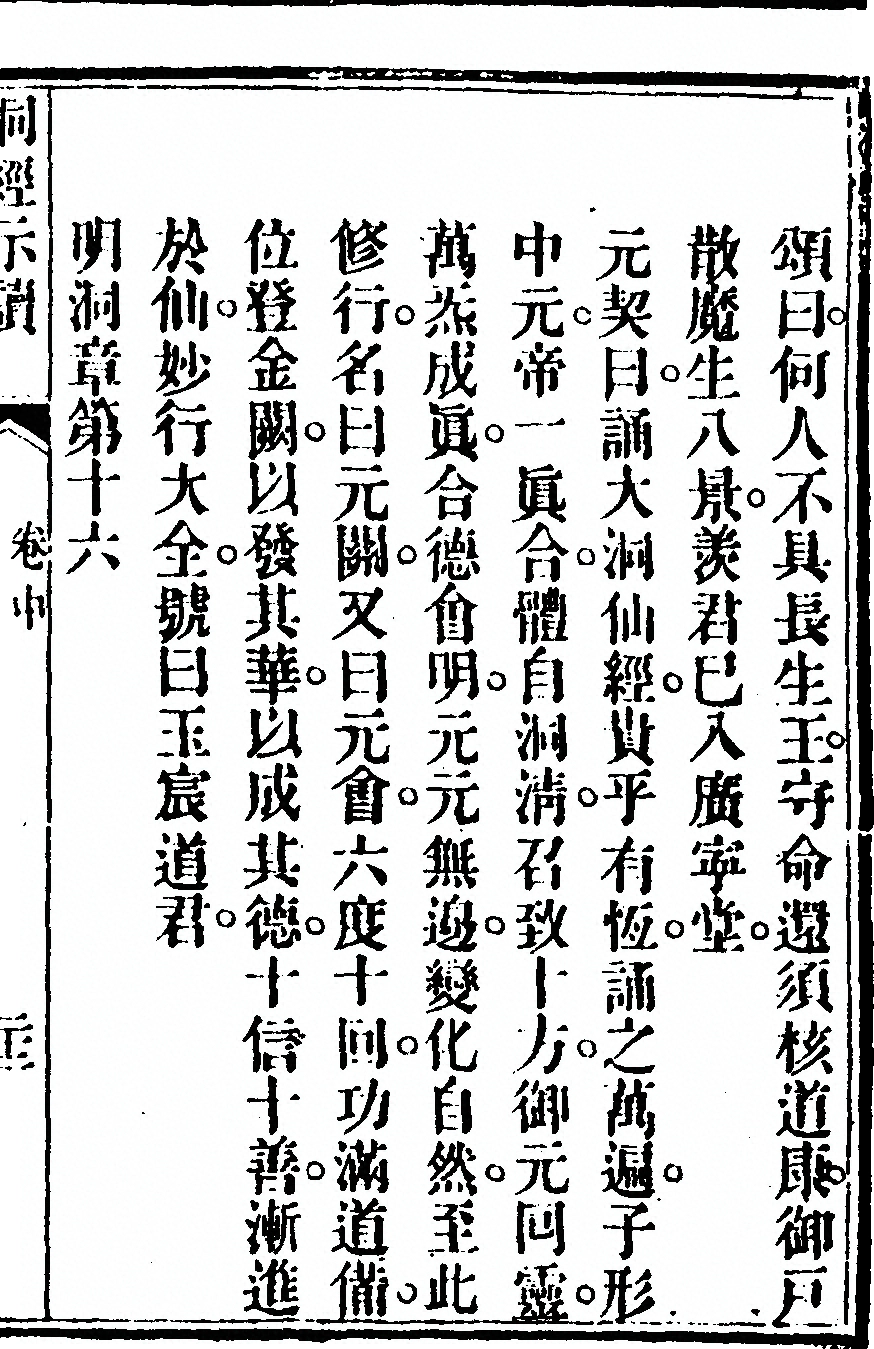 頌曰。何人不具長生王。守命還須核道康。御戶
散魔生八景。羨君已入廣寧堂。
元契曰。誦大洞仙經。貴乎有恆。誦之萬遍。子形
中元。帝一眞合。體自洞淸。召致十方。御元回靈。
萬炁成眞。合德會明。元元無邊。變化自然。至此
修行。名曰元關。又曰元會。六度十回。功滿道備。
位登金闕。以發其華。以成其德。十信十善。漸進
於仙。妙行大全。號曰玉宸道君。
明洞章第十六
洞經示讀
卷中